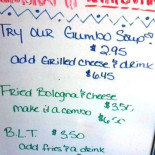 Try our Gumbo Soup
$2.95
add Grilled cheese & drink
$6.45
Fried Bologna & cheese
$3.50
make it a combo
$6.50
B.L.T. $3.50
add fries & drink